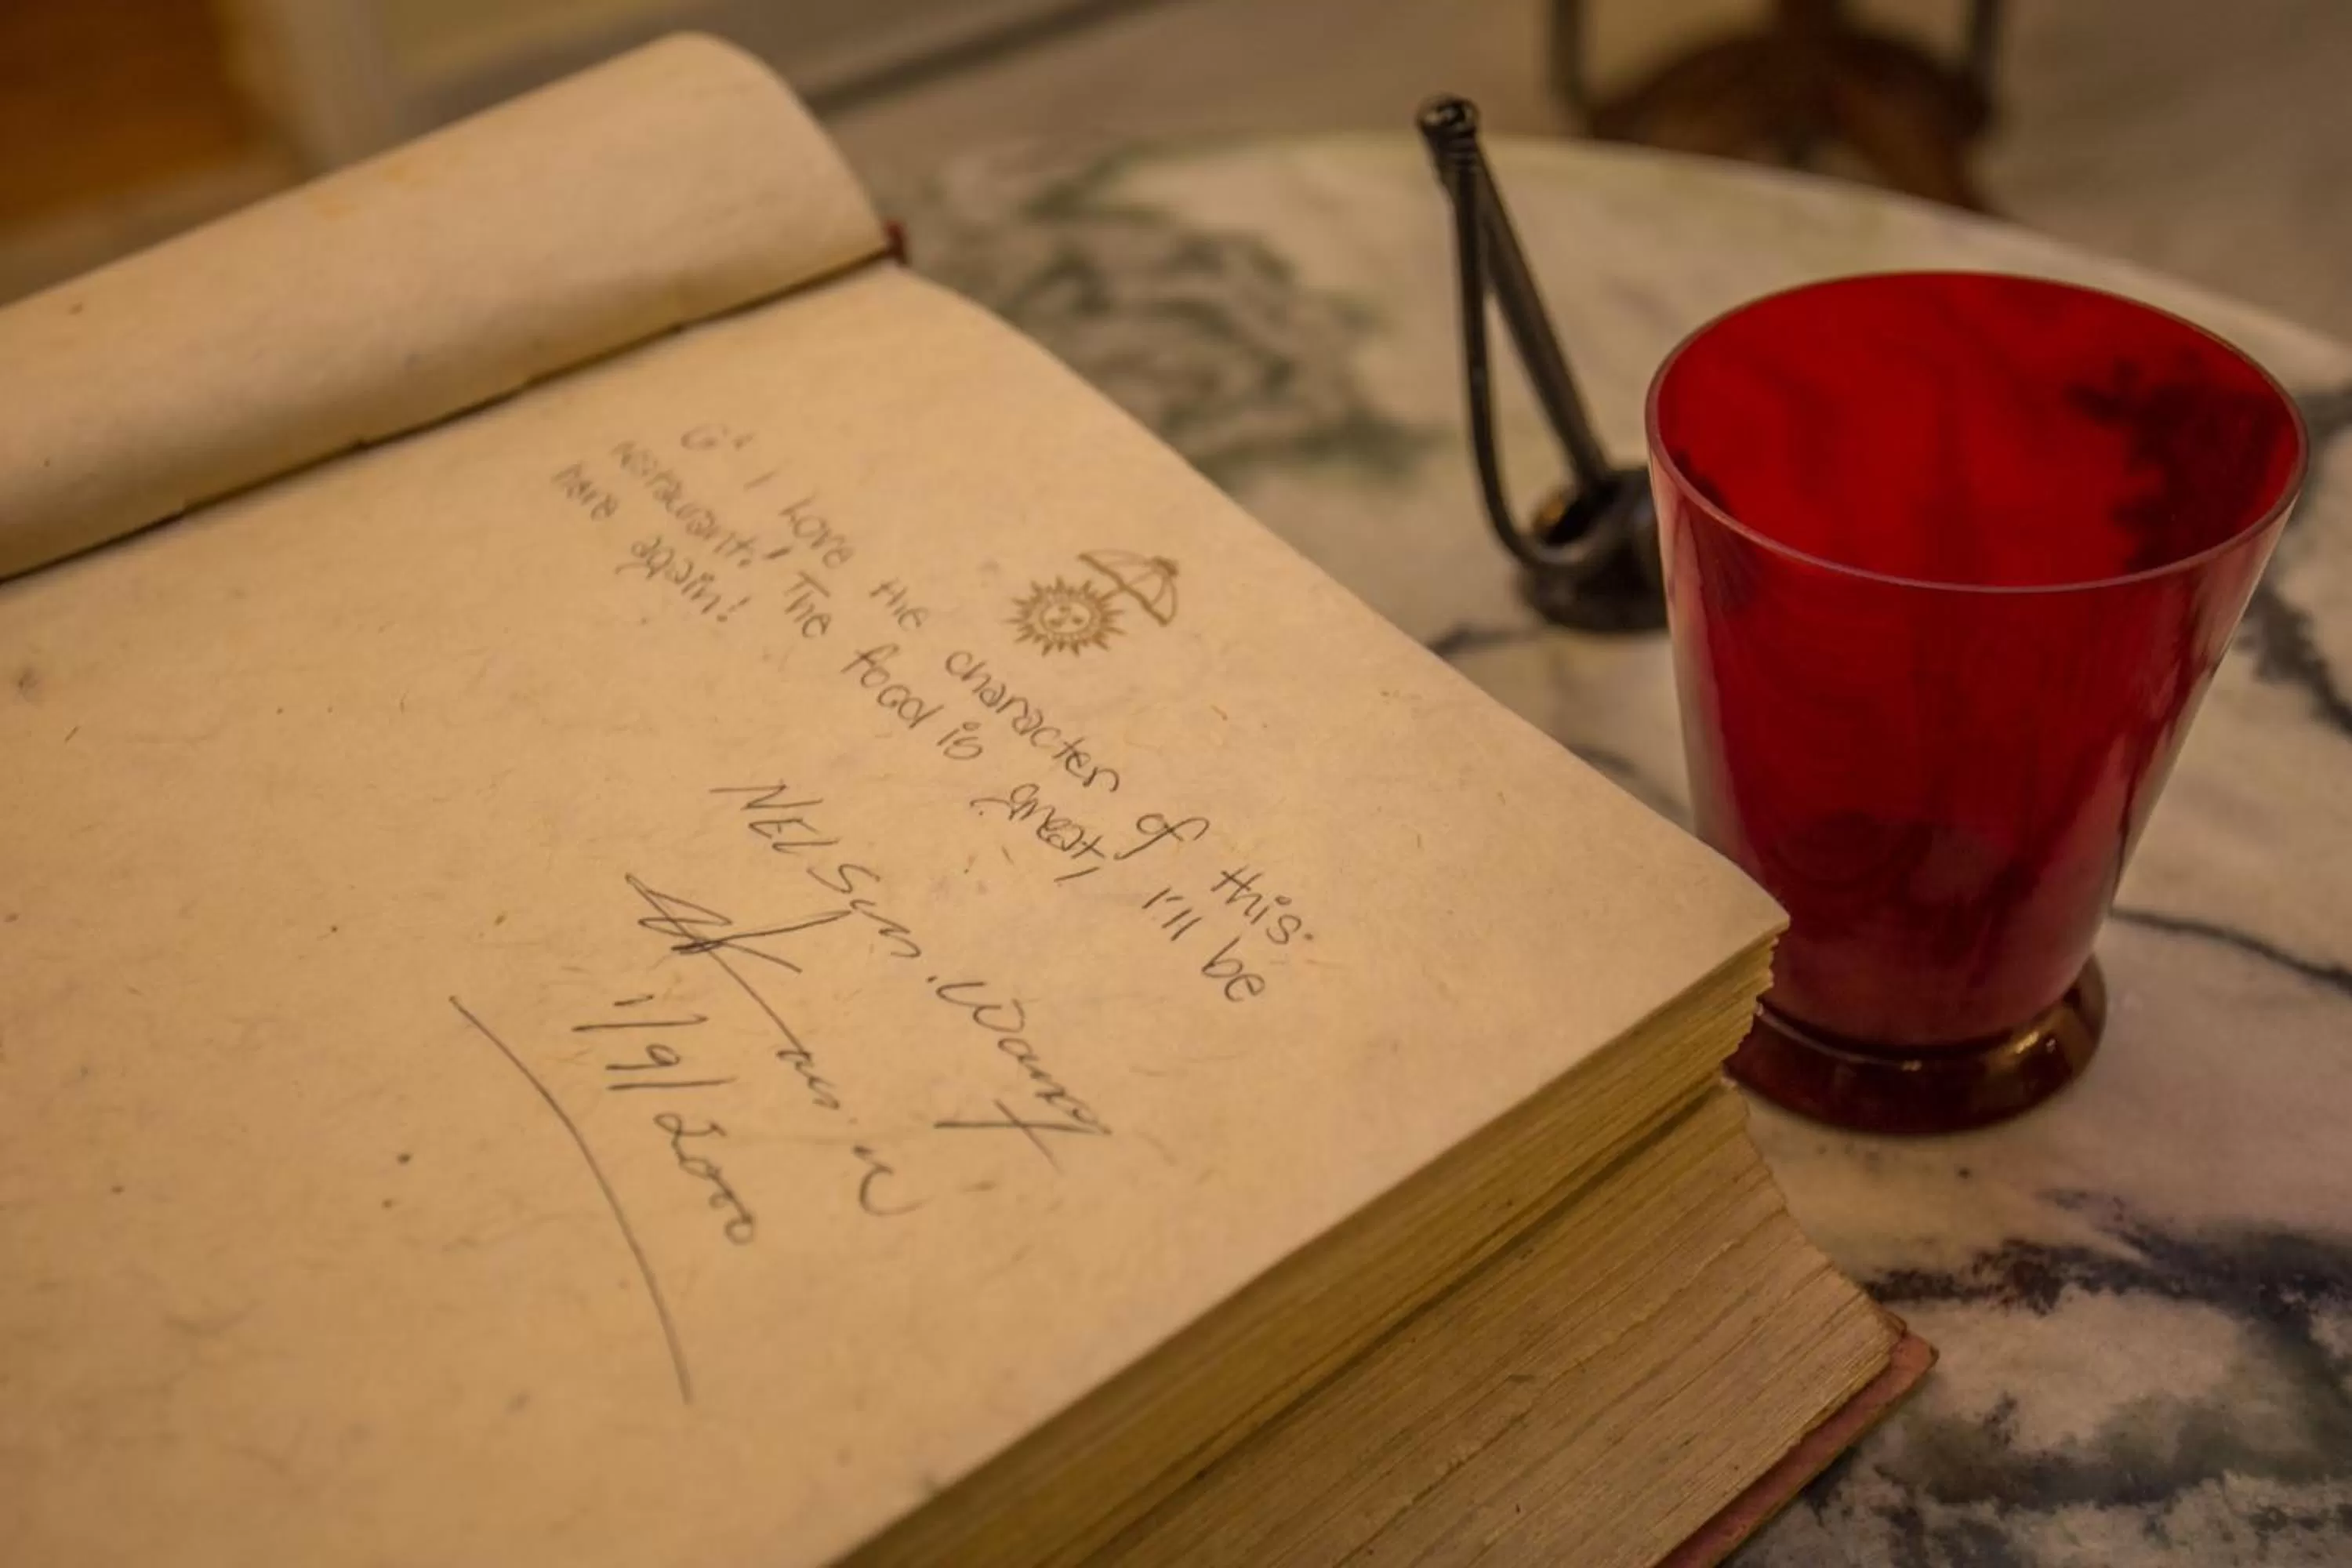 I Love the character of this
restaurant! The food is great, I'll be
here again!
NELSON. WONG
1/9/2000